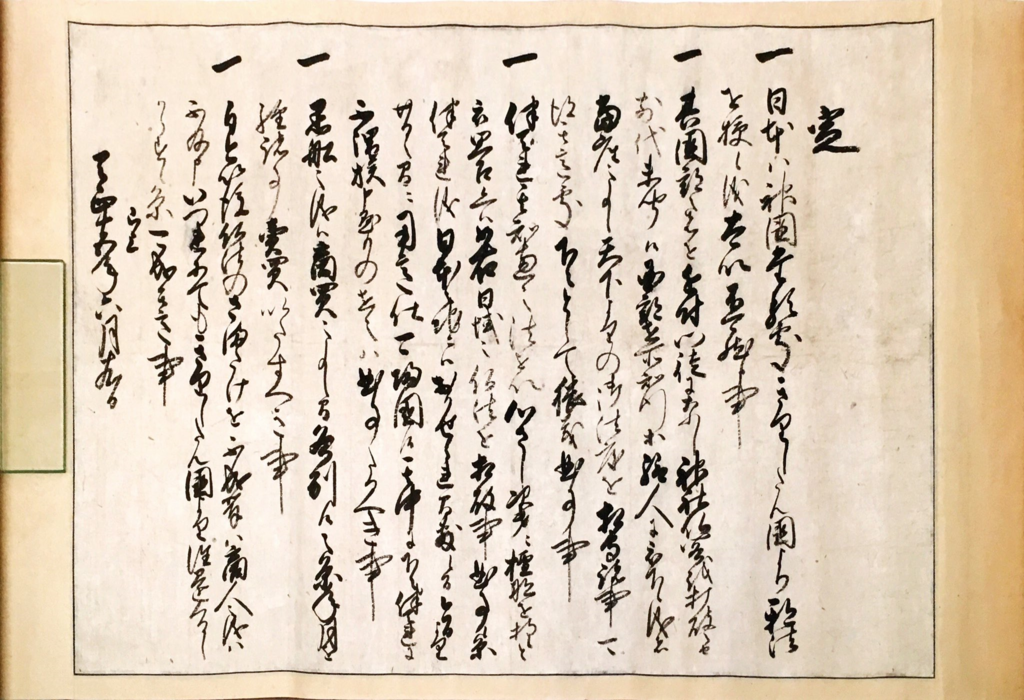 定
一 日本ハ神国たる処きりしたん国より邪法
を授候儀太以不可然候事
一 其国郡之者を近付門徒になし神社仏閣を打破之由
前代未聞候国郡在所知行等給人に被下候儀者
当座之事候天下よりの御法度を相守諸事可
得其意処下々として猥義曲事事
一 伴天連其知恵之法を以心さし次第ニ檀那を持候と
被思召候ヘハ如右日域之仏法を相破事曲事候条
伴天連儀日本之地ニハおかせられ間敷候間今日より
廿日之間ニ用意仕可帰国候其中に下々伴天連に
不謂族申懸もの在之ハ曲事たるへき事
一 黒船之儀ハ商買之事候間各別に候之条年月を
経諸事売買いたすへき事
一 自今以後仏法のさまたけを不成輩ハ商人之儀ハ
不及申いつれにてもきりしたん国より往還くるし
からす候条可成其意事
已上
天正十五年六月十九日